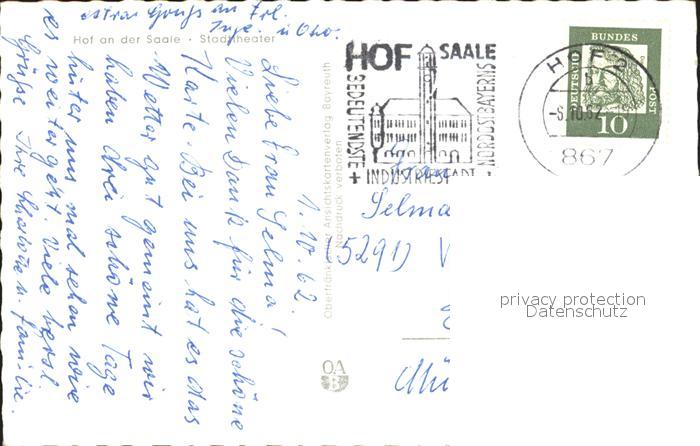 extra Gruß an Frl.
Inge. u. Otto.
Hof an der Saale - Stadttheater
1.10.62.
Liebe Frau Selma!
Vielen Dank für die schöne
Karte. Bei uns hat es das
Wetter gut gemeint wir
haben drei schöne Tage
hinter uns mal sehen wie
es weiter geht. Viele herzl.
Grüße Ihre u. Familie.
Oberfränkischer Ansichtskartenverlag Bayreuth
Nachdruck verboten
OA
B
HOF SAALE
BEDEUTENDSTE
INDUSTRIESTADT
NORDOSTBAYERNS
HOF 2
-8.10.62
867
DEUTSCHE
BUNDES
POST
10
Frau
Selma
(5291)
Mü
privacy protection
Datenschutz